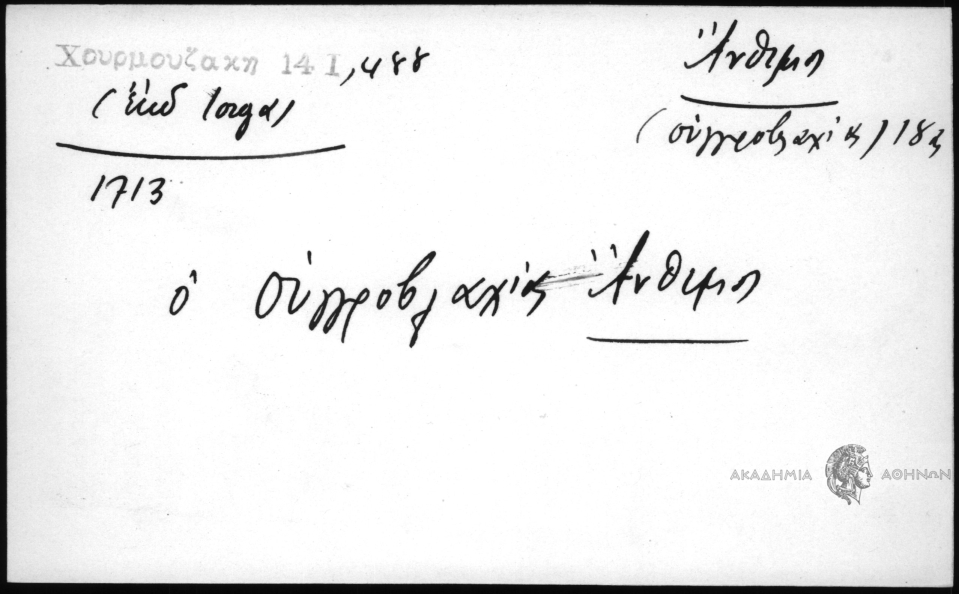 Χουρμουζακη 14 I, 488
(ἔκδ Ιοργα)
1713
Ἄνθιμος
(Οὑγγροβλαχίας) 18ος
ὁ Οὑγγροβλαχίας Ἄνθιμος
ΑΚΑΔΗΜΙΑ ΑΘΗΝΩΝ